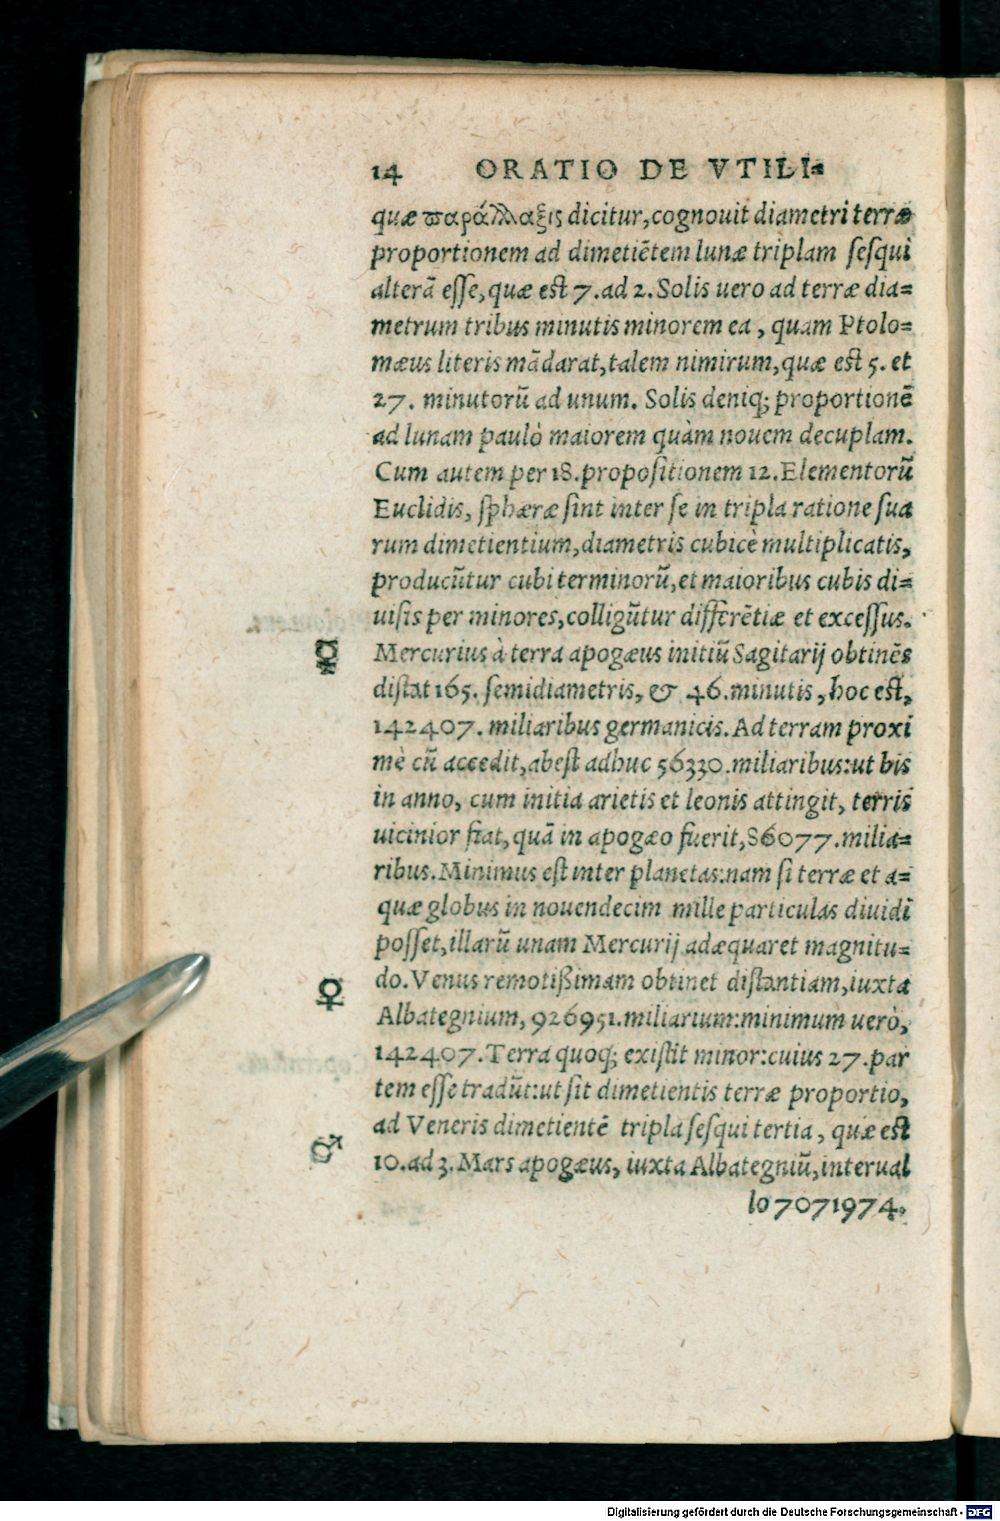 14 ORATIO DE VTILI=
quæ παράλλαξις dicitur, cognouit diametri terræ
proportionem ad dimetiẽtem lunæ triplam sesqui
alterã esse, quæ est 7. ad 2. Solis uero ad terræ dia=
metrum tribus minutis minorem ea, quam Ptolo=
mæus literis mãdarat, talem nimirum, quæ est 5. et
27. minutorũ ad unum. Solis deniq; proportionẽ
ad lunam paulò maiorem quàm nouem decuplam.
Cum autem per 18. propositionem 12. Elementorũ
Euclidis, sphæræ sint inter se in tripla ratione sua
rum dimetientium, diametris cubicè multiplicatis,
producũtur cubi terminorũ, et maioribus cubis di=
uisis per minores, colligũtur differẽtiæ et excessus.
☿ Mercurius à terra apogæus initiũ Sagitarij obtinẽs
distat 165. semidiametris, & 46. minutis, hoc est,
142407. miliaribus germanicis. Ad terram proxi
mè cũ accedit, abest adhuc 56330. miliaribus: ut bis
in anno, cum initia arietis et leonis attingit, terris
uicinior fiat, quã in apogæo fuerit, 86077. milia=
ribus. Minimus est inter planetas: nam si terræ et a=
quæ globus in nouendecim mille particulas diuidi
posset, illarũ unam Mercurij adæquaret magnitu=
♀ do. Venus remotißimam obtinet distantiam, iuxta
Albategnium, 926951. miliarium: minimum uerò,
142407. Terra quoq; existit minor: cuius 27. par
tem esse tradũt: ut sit dimetientis terræ proportio,
ad Veneris dimetientẽ tripla sesqui tertia, quæ est
♂ 10. ad 3. Mars apogæus, iuxta Albategniũ, interual
lo 7071974.
Digitalisierung gefördert durch die Deutsche Forschungsgemeinschaft - DFG